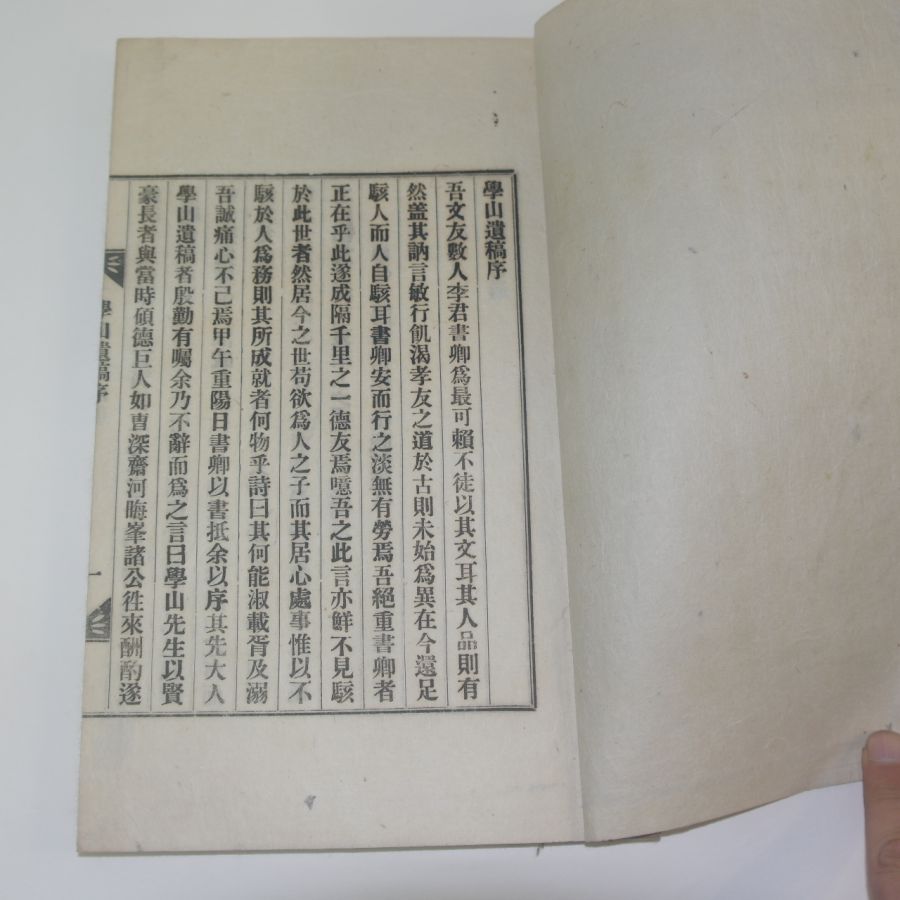 學山遺稿序
吾文友數人李君書卿爲最可賴不徒以其文耳其人品則有
然蓋其訥言敏行飢渴孝友之道於古則未始爲異在今還足
駭人而人自駭耳書卿安而行之淡無有勞焉吾絕重書卿者
正在乎此遂成隔千里之一德友焉噫吾之此言亦鮮不見駭
於此世者然居今之世苟欲爲人之子而其居心處事惟以不
駭於人爲務則其所成就者何物乎詩曰其何能淑載胥及溺
吾誠痛心不已焉甲午重陽日書卿以書抵余以序其先大人
學山遺稿者殷勤有囑余乃不辭而爲之言曰學山先生以賢
豪長者與當時碩德巨人如曺深齋河晦峯諸公徃來酬酌遂
學山遺稿序
一